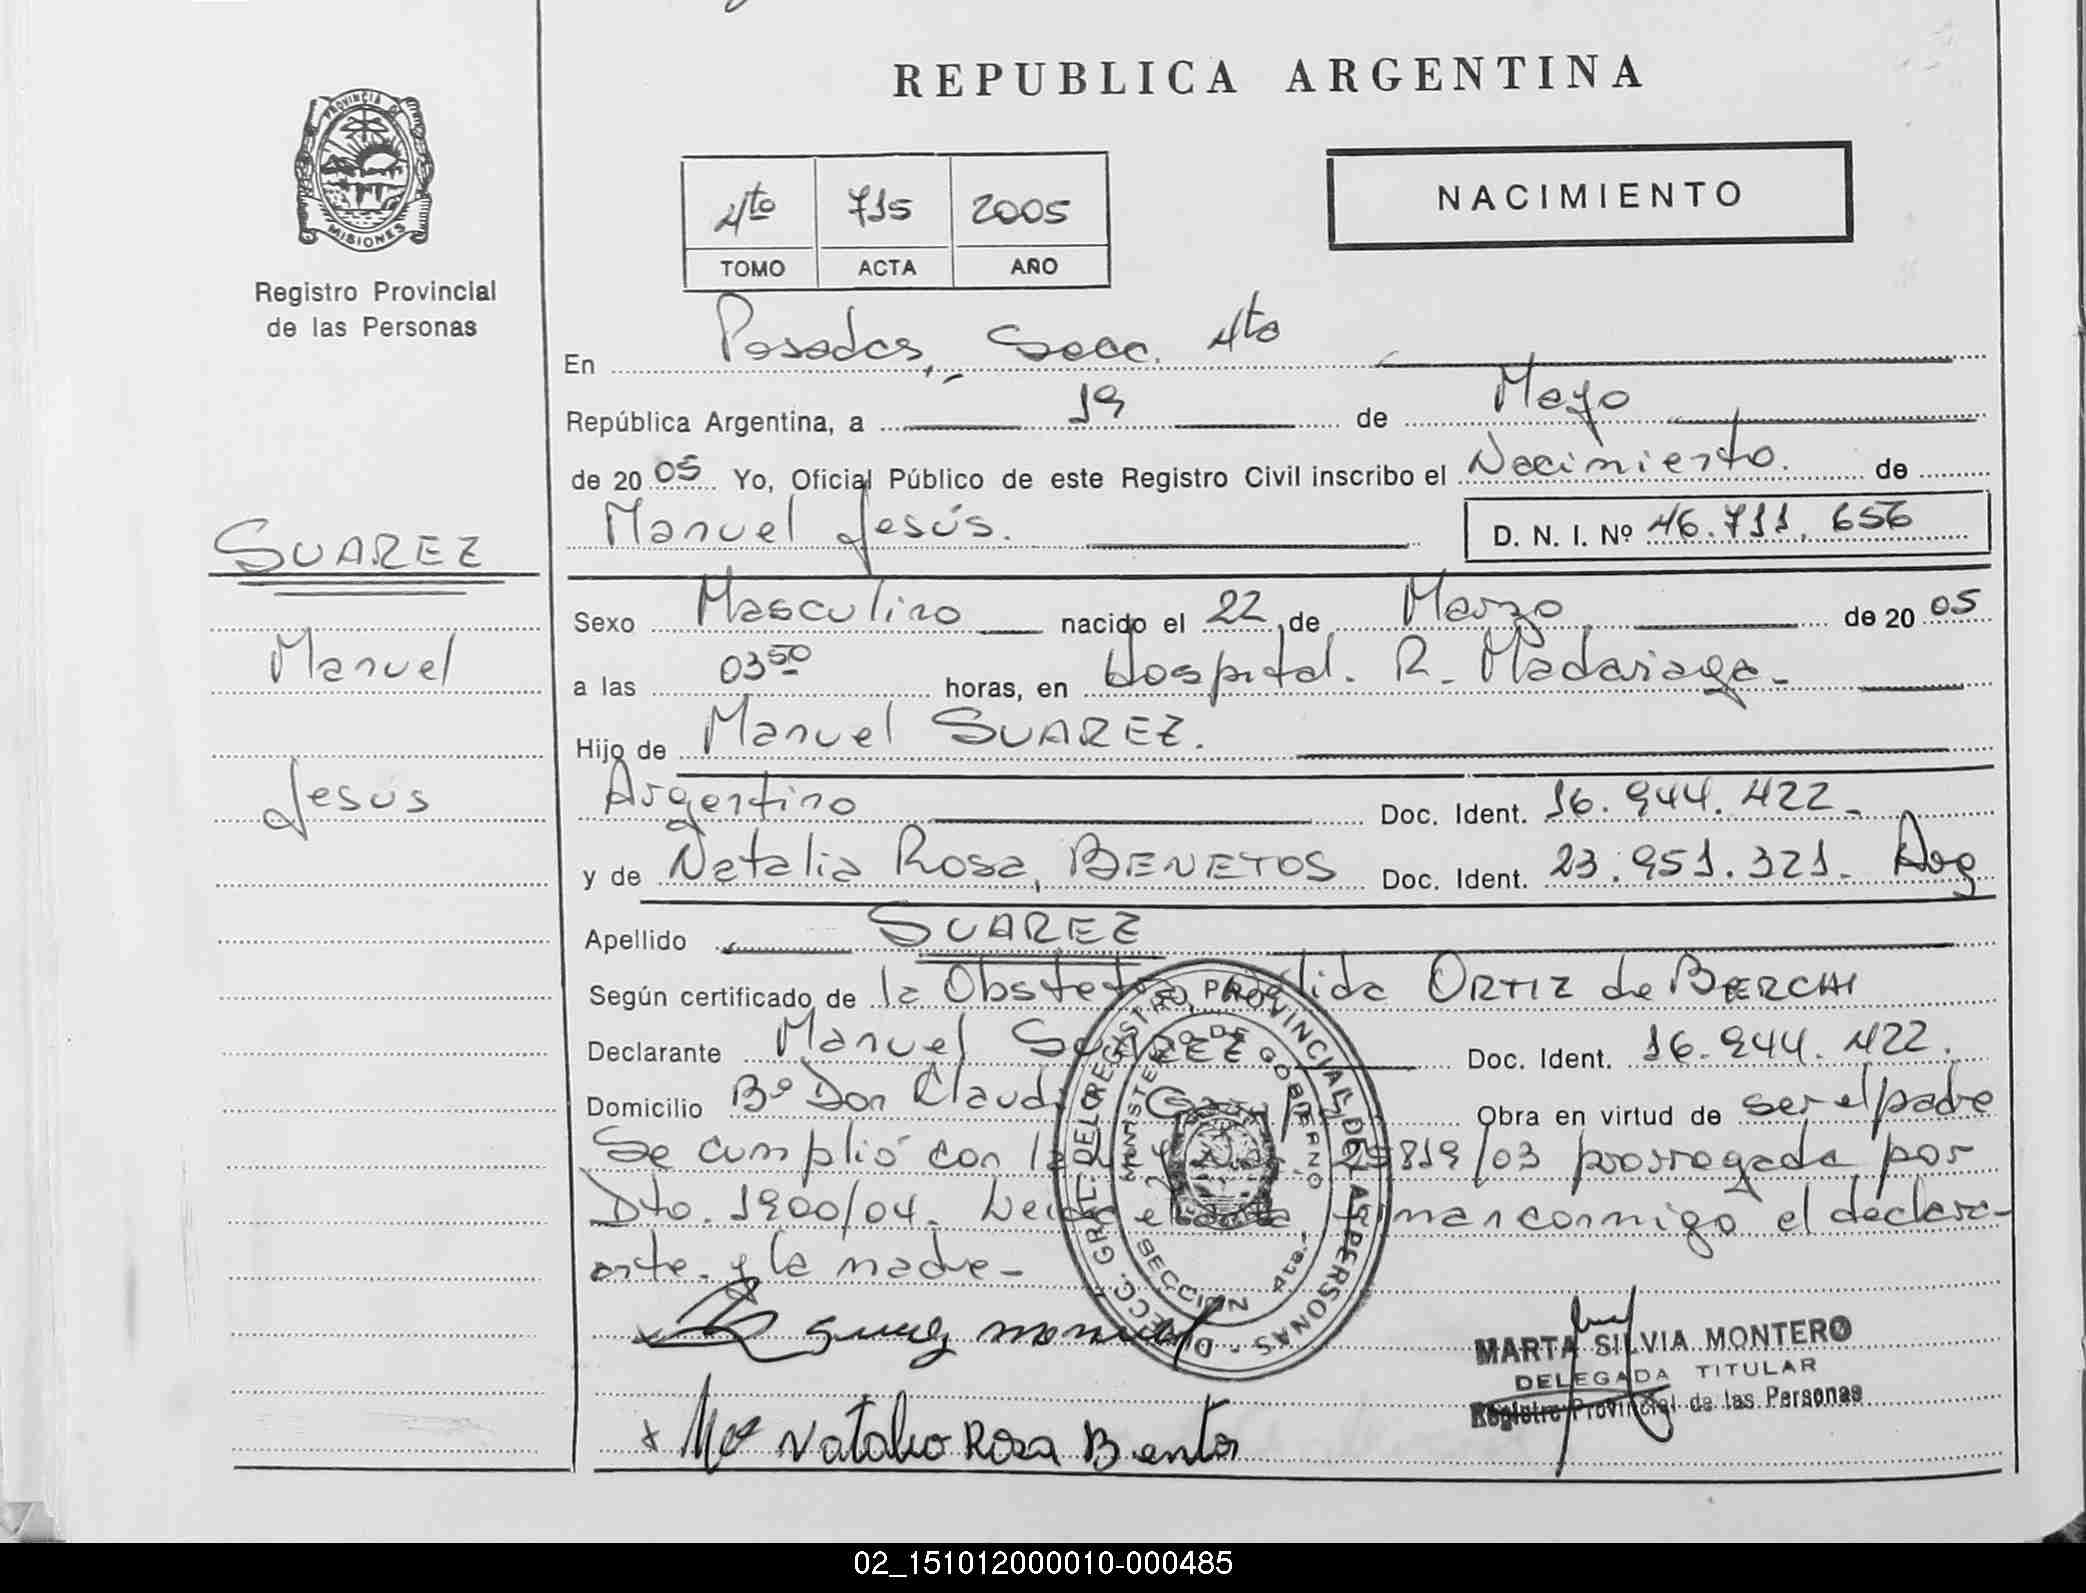 REPUBLICA ARGENTINA
PROVINCIA DE
MISIONES
Registro Provincial
de las Personas
4to 715 2005
TOMO ACTA AÑO
NACIMIENTO
En Posadas, Secc. 4to
República Argentina, a 19 de Mayo
de 2005 Yo, Oficial Público de este Registro Civil inscribo el Nacimiento. de
Manuel Jesús. D. N. I. Nº 46.711.656
SUAREZ
Manuel
Jesús
Sexo Masculino nacido el 22 de Marzo de 2005
a las 03 50 horas, en Hospital. R. Madariaga-
Hijo de Manuel SUAREZ.
Argentino Doc. Ident. 16.944.422-
y de Natalia Rosa, BENETOS Doc. Ident. 23.951.321- Arg
Apellido SUAREZ
Según certificado de la ORTIZ de BERCHI
Declarante Manuel SUAREZ Doc. Ident. 16.944.422.
Domicilio Bº Don Obra en virtud de ser el padre
Se cumplió con 25819/03 prorrogada por
Dto. 1900/04. conmigo el declara-
ante y la madre-
DIRECC. GRAL. DEL REGISTRO PROVINCIAL DE LAS PERSONAS -
MINISTERIO DE GOBIERNO
SECCION 4ta.-
Suarez Manuel
x Mª Natalia Rosa
MARTA SILVIA MONTERO
DELEGADA TITULAR
Registro Provincial de las Personas
02_151012000010-000485